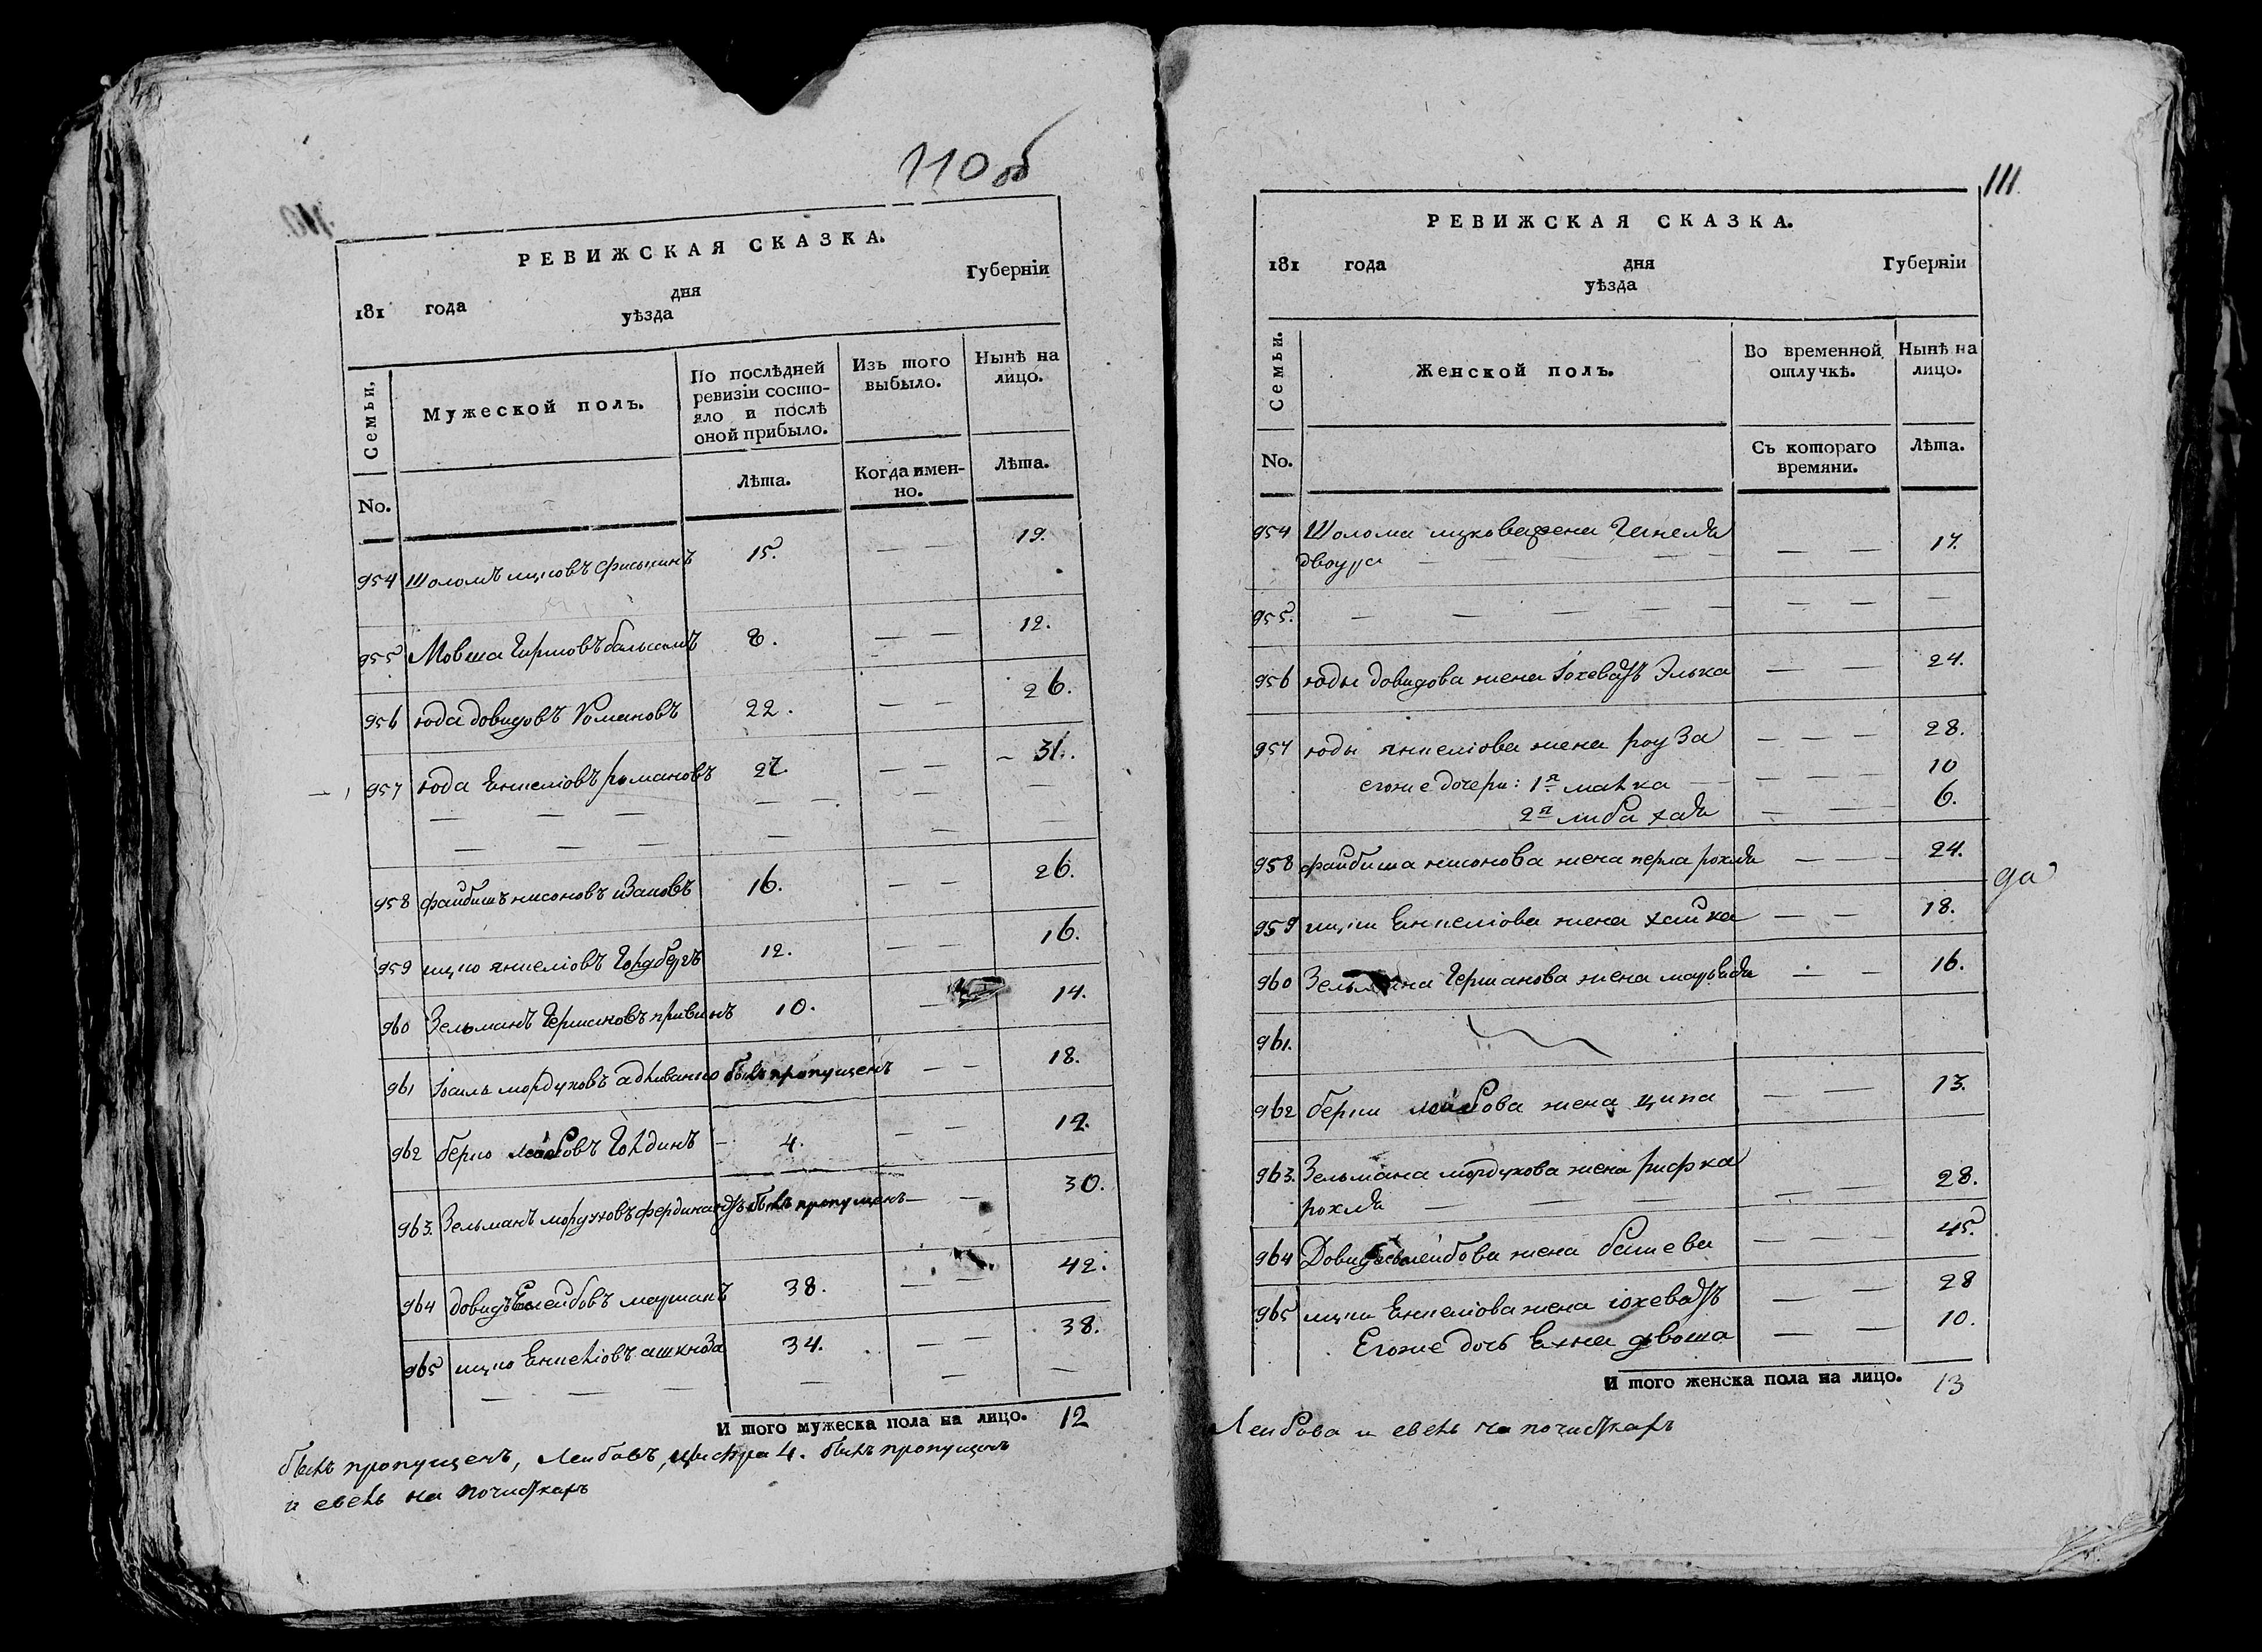 110 об
РЕВИЖСКАЯ СКАЗКА.
181 года дня Губерніи
уѣзда
Семьи.
Мужеской полъ.
По послѣдней ревизіи состо-
яло и послѣ
оной прибыло.
Изъ того
выбыло.
Нынѣ на
лицо.
No.
Лѣта.
Когда имен-
но.
Лѣта.
954 Шоломъ ицковъ 15. — — 19.
955 Мовша Гиршовъ 8. — — 12.
956 юда довидовъ Романовъ 22. — — 26.
957 юда Енкеліовъ романовъ 27. — — 31.
958 файбишъ нисоновъ 16. — — 26.
959 ицко янкеліовъ Голдбергъ 12. — — 16.
960 Зельманъ Гершановъ 10. — 14.
961 мордуховъ былъ пропущенъ — — 18.
962 берко лейбовъ Голдинъ 4. — — 12.
963. Зельманъ мордуховъ фердинандъ былъ пропущенъ — — 30.
964 довидъ лейбовъ 38. — — 42.
965 ицко Енкеліовъ ашкназа 34. — — 38.
И того мужеска пола на лицо. 12
былъ пропущенъ, Лейбовъ, цыфра 4. былъ пропущенъ
и евель на почисткахъ
111.
РЕВИЖСКАЯ СКАЗКА.
181 года дня Губерніи
уѣзда
Семьи.
Женской полъ.
Во временной
отлучкѣ.
Нынѣ на
лицо.
No.
Съ котораго
времяни.
Лѣта.
954 Шолома ицкова жена Генеля — — 17.
двойра
955. — — — — — — — —
956 юды довидова жена Іохеведъ Элька — — 24.
957 юды янкеліова жена роуза — — — 28.
егоже дочери: 1я малка — — 10
2я либа хая — — 6.
958 файбиша нисонова жена перла рохля — — — 24.
959 ицки Енкеліова жена хайка — — 18.
960 Зельмана Гершанова жена — — 16.
961.
962 берки лейбова жена ципа — — 13.
963. Зельмана мордухова жена рифка
рохля — — 28.
964 Довида лейбова жена башева — — — 45.
965 ицки Енкеліова жена іохеведъ — — 28
Егоже дочь Ехна двоша — — 10.
И того женска пола на лицо. 13
Лейбова и евель на почисткахъ